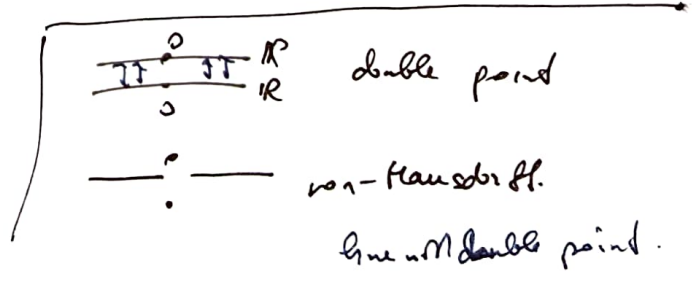 0 ℝ
ℝ double point
0
non-Hausdorff.
line with double point.